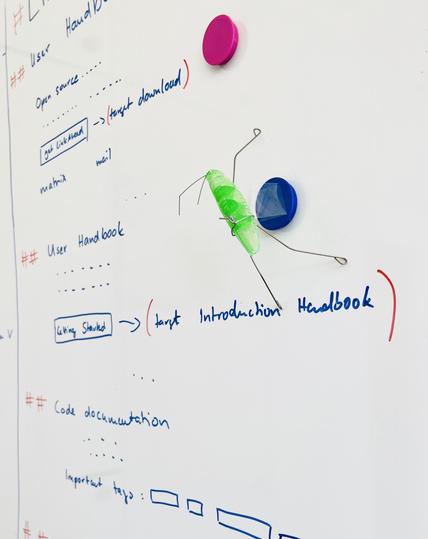 # L
Handbo
## User
Open source ......
→ (target download)
matrix mail
...
## User Handbook
Getting Started → (target Introduction Handbook)
...
## Code documentation
Important tags :
##